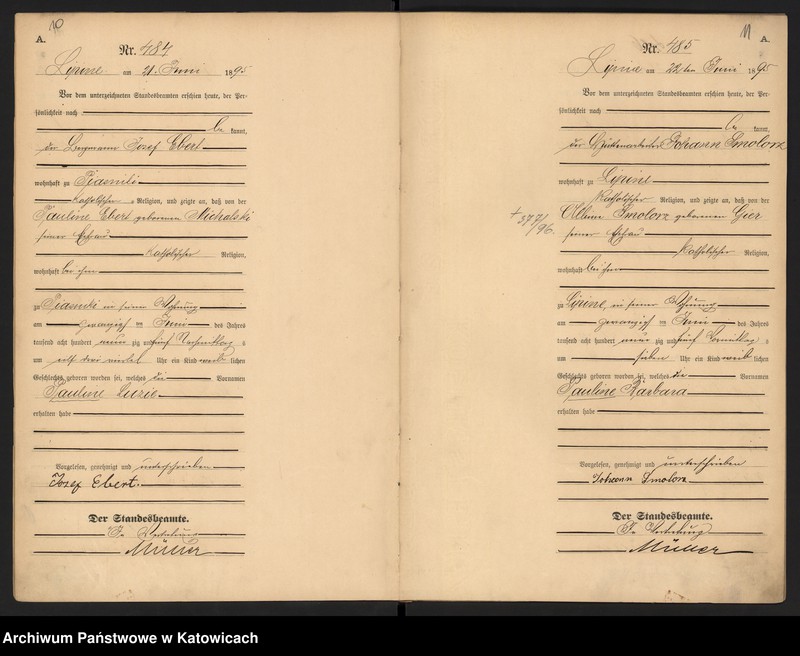 10
A.
Nr. 484
Lipine am 21. Juni 1895
Vor dem unterzeichneten Standesbeamten erschien heute, der Per-
sönlichkeit nach
be kannt,
der Bergmann Josef Ebert
wohnhaft zu Piasniki
katholischer Religion, und zeigte an, daß von der
Pauline Ebert geborenen Michalski
seiner Ehefrau
katholischer Religion,
wohnhaft bei ihm
zu Piasniki in seiner Wohnung
am zwanzigsten Juni des Jahres
tausend acht hundert neun zig und fünf Nachmittags
um elf drei viertel Uhr ein Kind weib lichen
Geschlechts geboren worden sei, welches die Vornamen
Pauline Lucie
erhalten habe
Vorgelesen, genehmigt und unterschrieben
Josef Ebert.
Der Standesbeamte.
In Vertretung
Müller
11
A.
Nr. 485
Lipine am 22ten Juni 1895
Vor dem unterzeichneten Standesbeamten erschien heute, der Per-
sönlichkeit nach
be kannt,
der Hüttenarbeiter Johann Smolorz
wohnhaft zu Lipine
katholischer Religion, und zeigte an, daß von der
Albine Smolorz geborenen Gier
seiner Ehefrau
katholischer Religion,
wohnhaft bei ihm
zu Lipine, in seiner Wohnung
am zwanzigsten Juni des Jahres
tausend acht hundert neun zig und fünf Vormittags
um sieben Uhr ein Kind weib lichen
Geschlechts geboren worden sei, welches die Vornamen
Pauline Barbara
erhalten habe
Vorgelesen, genehmigt und unterschrieben
Johann Smolorz
Der Standesbeamte.
In Vertretung
Müller
+ 377/96.
Archiwum Państwowe w Katowicach